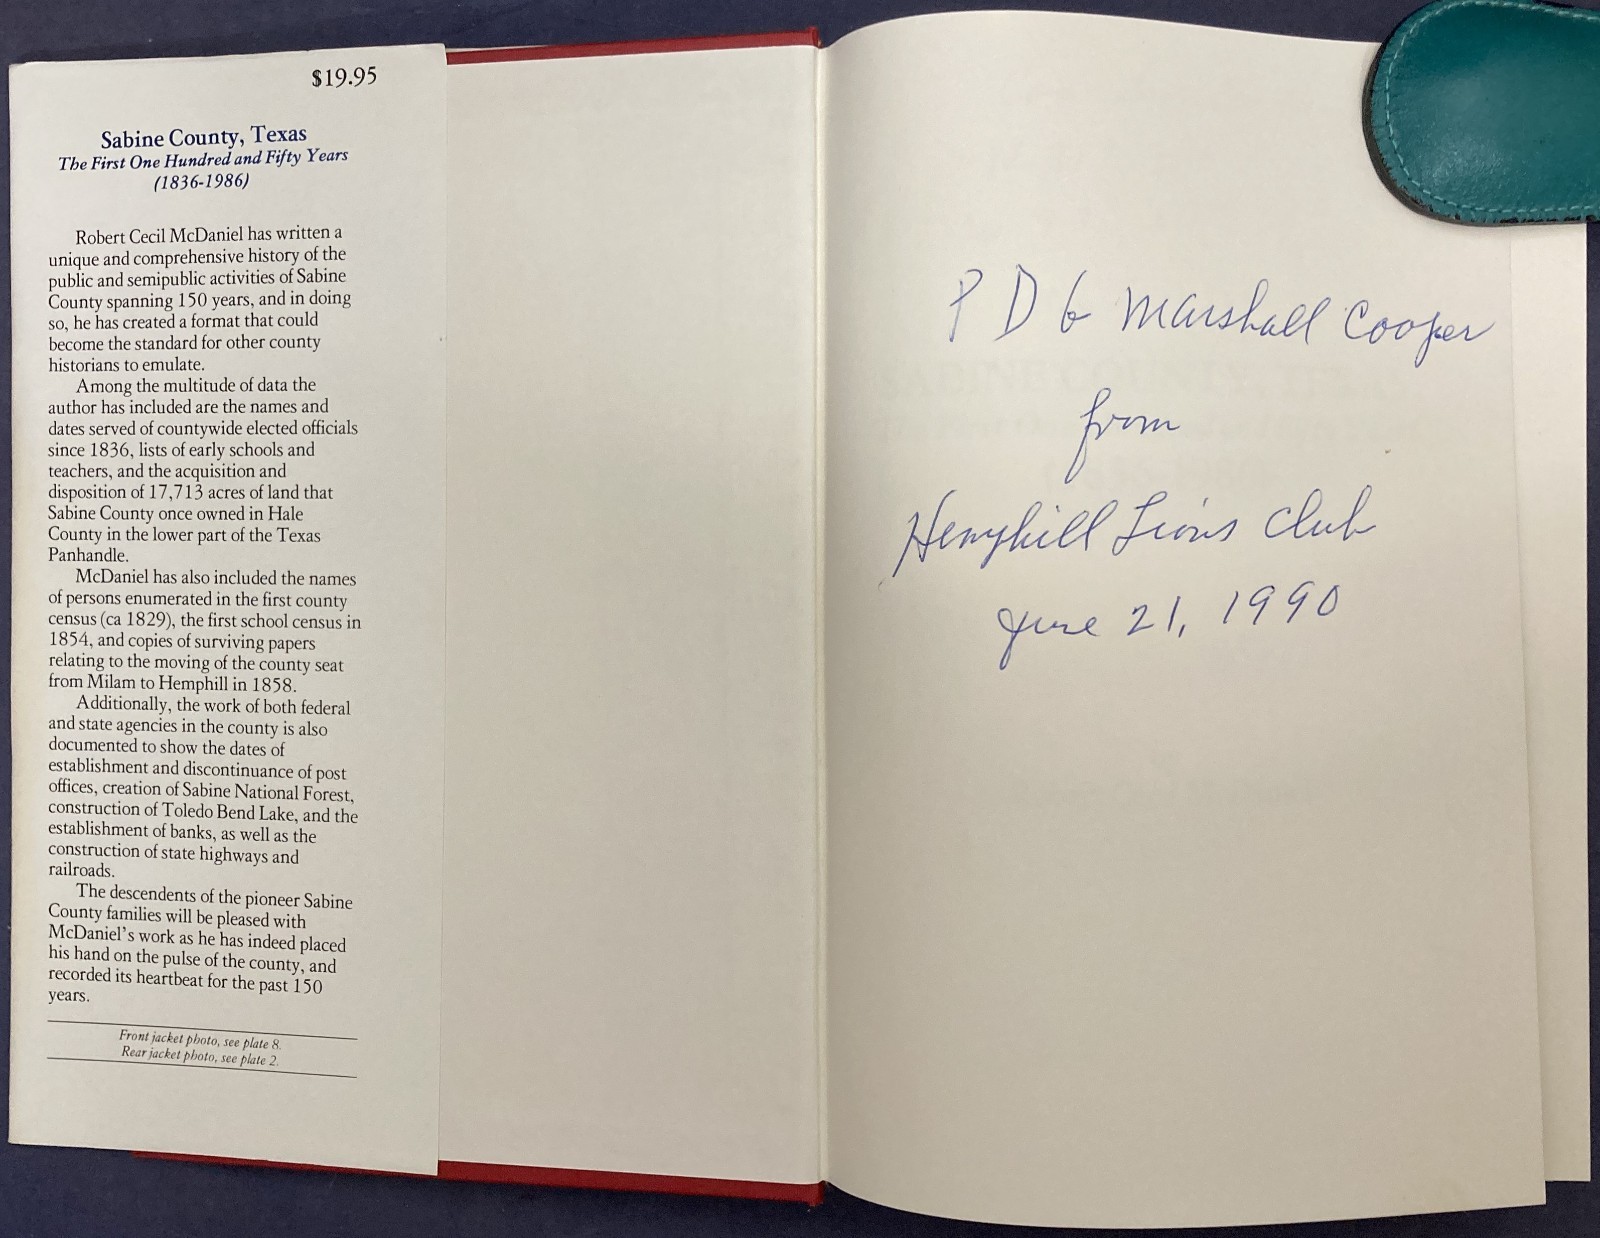 $19.95
Sabine County, Texas
The First One Hundred and Fifty Years
(1836-1986)
Robert Cecil McDaniel has written a
unique and comprehensive history of the
public and semipublic activities of Sabine
County spanning 150 years, and in doing
so, he has created a format that could
become the standard for other county
historians to emulate.
Among the multitude of data the
author has included are the names and
dates served of countywide elected officials
since 1836, lists of early schools and
teachers, and the acquisition and
disposition of 17,713 acres of land that
Sabine County once owned in Hale
County in the lower part of the Texas
Panhandle.
McDaniel has also included the names
of persons enumerated in the first county
census (ca 1829), the first school census in
1854, and copies of surviving papers
relating to the moving of the county seat
from Milam to Hemphill in 1858.
Additionally, the work of both federal
and state agencies in the county is also
documented to show the dates of
establishment and discontinuance of post
offices, creation of Sabine National Forest,
construction of Toledo Bend Lake, and the
establishment of banks, as well as the
construction of state highways and
railroads.
The descendents of the pioneer Sabine
County families will be pleased with
McDaniel's work as he has indeed placed
his hand on the pulse of the county, and
recorded its heartbeat for the past 150
years.
Front jacket photo, see plate 8.
Rear jacket photo, see plate 2.
P D G Marshall Cooper
from
Hemphill Lions Club
June 21, 1990